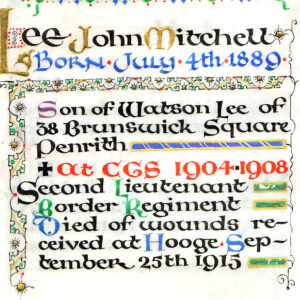 Lee John Mitchell
Born July 4th 1889.
Son of Watson Lee of
38 Brunswick Square
Penrith
✚ at CGS 1904-1908
Second Lieutenant
Border Regiment
Died of wounds re-
ceived at Hooge Sep-
tember 25th 1915